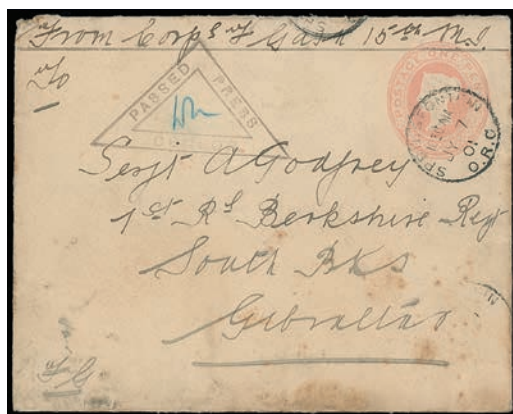 From Corpl F Gash 15th M.I.
To
PASSED PRESS CENSOR
POSTAGE ONE PENNY
SPRINGFONTEIN
JY 7
01
O.R.C.
Sergt A Godfrey
1st Rl Berkshire Regt
South Bks
Gibraltar
FG